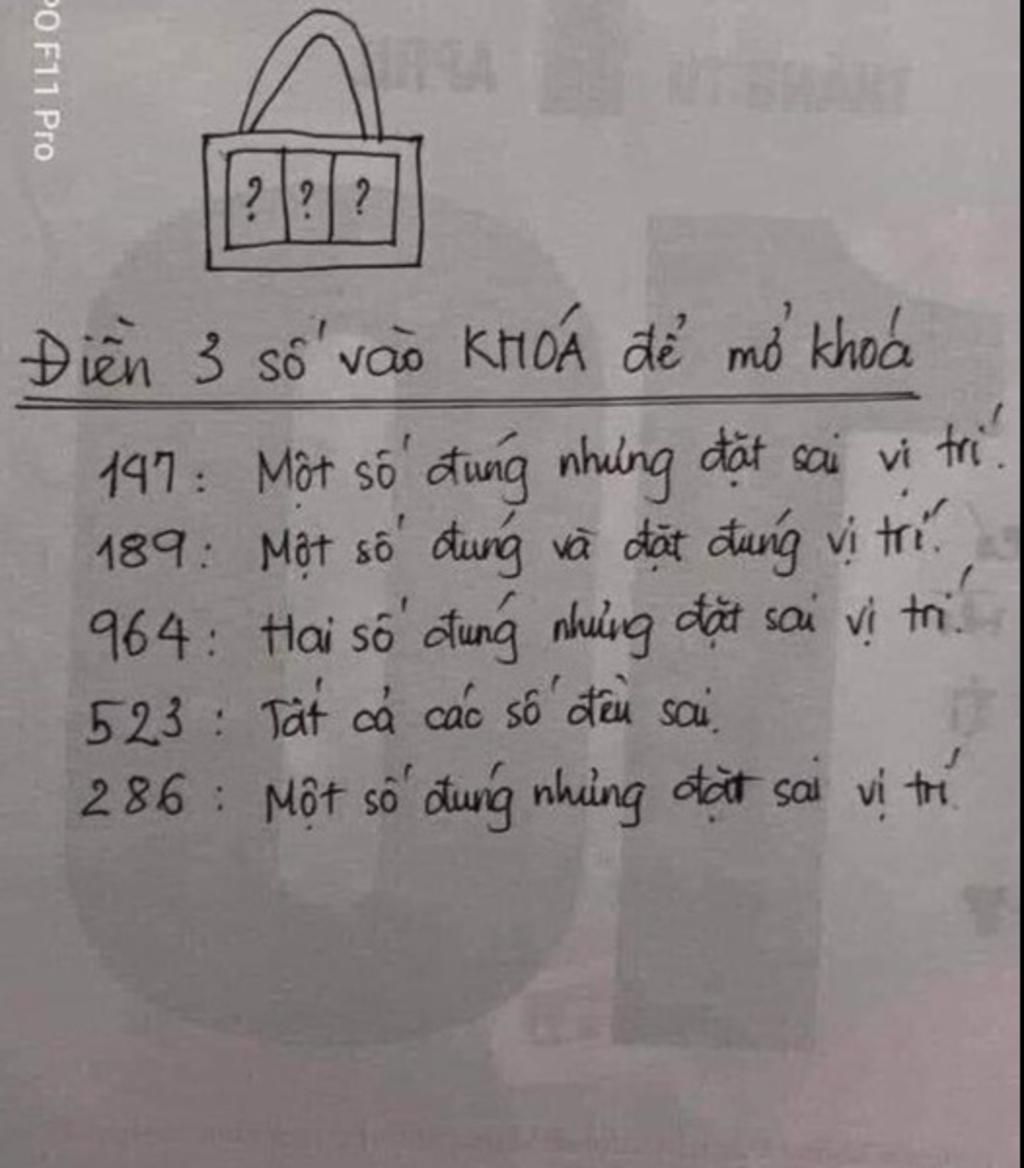 PO F11 Pro
? ? ?
Điền 3 số vào KHOÁ để mở khoá
197: Một số đúng nhưng đặt sai vị trí.
189: Một số đúng và đặt đúng vị trí.
964: Hai số đúng nhưng đặt sai vị trí.
523: Tất cả các số đều sai.
286: Một số đúng nhưng đặt sai vị trí.